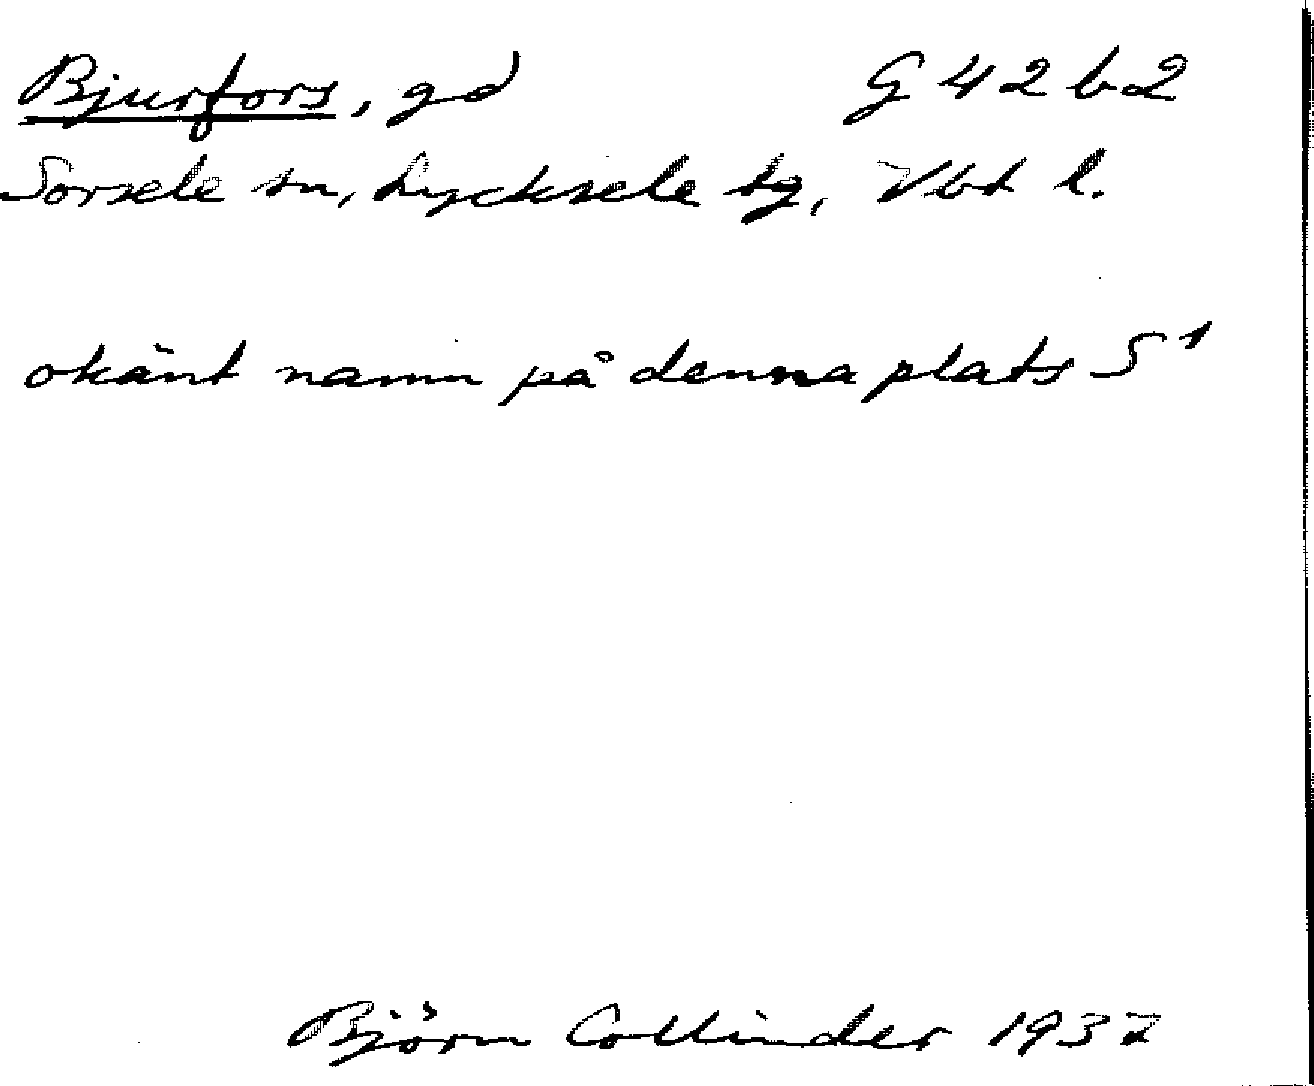 Bjurfors, gd G 42 b 2
Sorsele sn, Lycksele tg, Vbt l.
okänt namn på denna plats S¹
Björn Collinder 1937